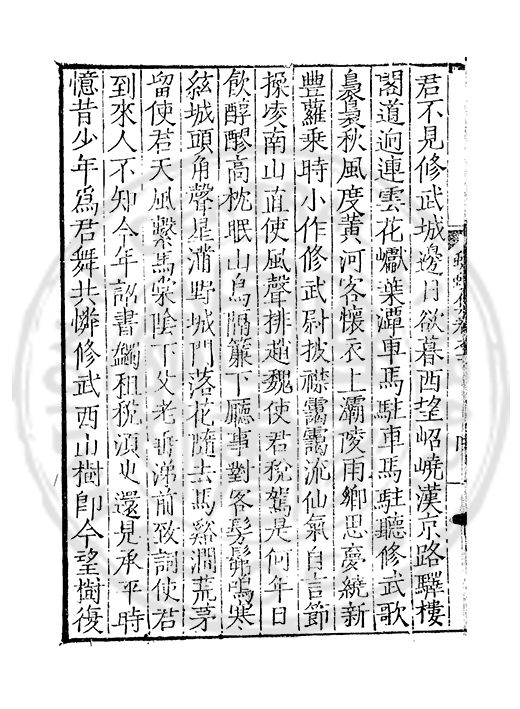 君不見修武城邊日欲暮西望岧嶢漢京路驛樓
閣道逈連雲花巘葉潭車馬駐車馬駐聽修武歌
裊裊秋風度黃河客懷衣上灞陵雨鄉思夢繞新
豐蘿乘時小作修武尉披襟靄靄流仙氣自言節
操凌南山直使風聲排趙魏使君稅駕是何年日
飲醇醪高枕眠山鳥隔簾下廳事對客髣髴鳴寒
絃城頭角聲星滿野城門落花隨去馬谿澗荒茅
留使君天風繫馬棠陰下父老垂涕前致詞使君
到來人不知今年詔書蠲租稅須臾還見承平時
憶昔少年為君舞共憐修武西山樹即今望樹復